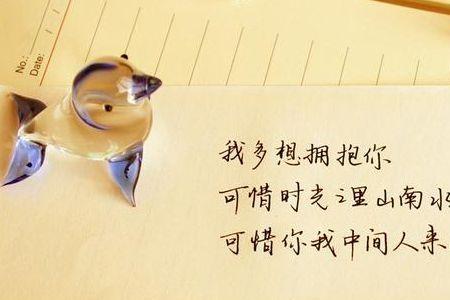 No.:
Date:
我多想拥抱你
可惜时光之里山南水
可惜你我中间人来